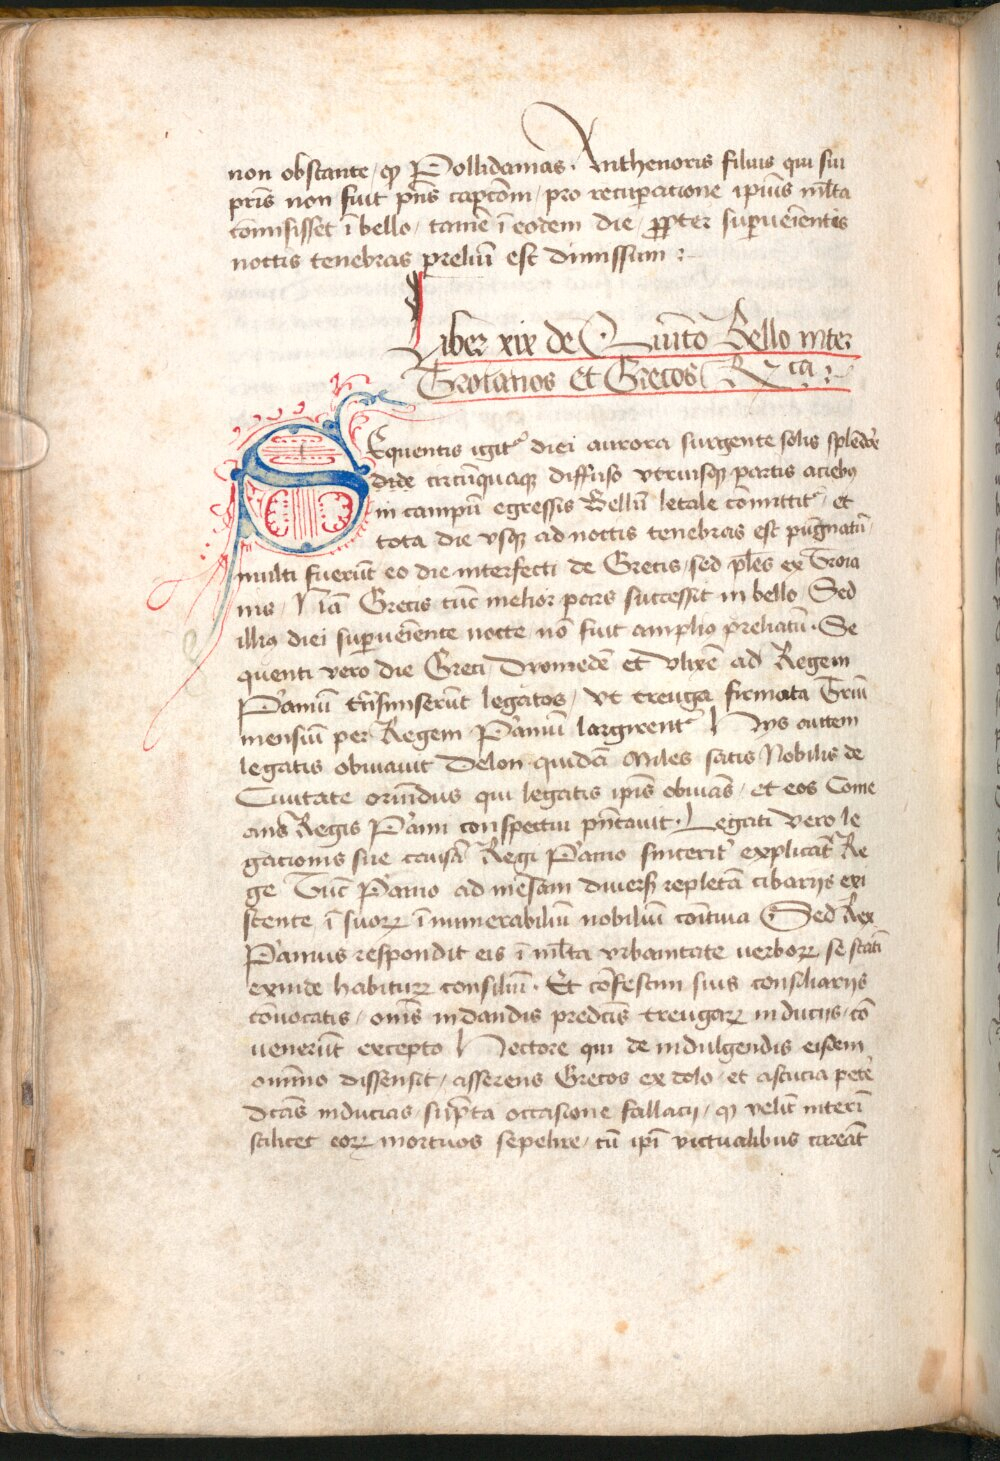 non obstante / ꝙ Pollidamas · Anthenoris filius qui sui
pr̄is non fuit pn̄s capcōni / pro recuꝑatione ipīus ml̄ta
cōmisisset ī bello / tamē ī eodem die / ꝓpter suꝑueīentis
noctis tenebras preliū est dimissum :
Liber xix de Quīto Bello inter
Troianos et Grecos R ca :
Sequentis igit᷑ diei aurora surgente solis splēdōe
dide circūquaqꝫ diffuso vtriusqꝫ partis aciebꝰ
in campū egressis Bellū letale cōmittit᷑ / et
tota die vsqꝫ ad noctis tenebras est pugnatū /
multi fuerūt eo die interfecti de Grecis / sed pl̄es ex Troia
nis / Nā Grecis tūc melior pars successit in bello / Sed
illiꝰ diei suꝑueīente nocte nō fuit ampliꝰ preliatū · Se
quenti vero die Greci / Dyomedē et Vlixē ad Regem
P̄amū trāsmiserūt legatos / vt treuga firmata Trīū
mensiū per Regem P̄amū largirent᷑ Hijs autem
legatis obuiauit Delon quidā Miles satis Nobilis de
Ciuitate oriūdus qui legatis ip̄is obuiās / et eos Come
ans Regis P̄ami conspectui pn̄tauit · Legati vero le
gacionis sue causā Regi P̄amo sincerit᷑ explicāt Re
ge Tūc P̄amo ad mēsam diuersis repletā cibarijs exi
stente ī suoꝝ īnumerabiliū nobiliū cōitiua Sed Rex
P̄amus respondit eis ī ml̄ta vrbanitate uerboꝝ se statī
exinde habituꝝ consiliū · Et cōfestim suis consiliarijs
cōuocatis / om̄s in dandis predc̄is treugaꝝ inducijs / cō
uenerūt excepto Hectore qui de indulgendis eisdem
om̄ino dissensit / asserens Grecos ex dolo / et astucia peteʾ
dc̄as inducias / sūpta occasione fallacij / ꝙ velīt interī
scilicet eoꝝ mortuos sepelire / cū ipī victualibus careāt